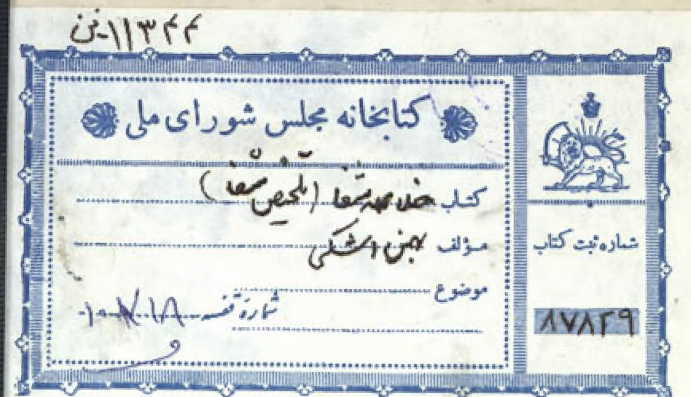 ۱۱۳۴۴
کتابخانه مجلس شورای ملی
کتاب خلاصه شفا (تلخیص شفا)
مؤلف
موضوع
شماره قفسه
شماره ثبت کتاب
۸۷۸۲۹